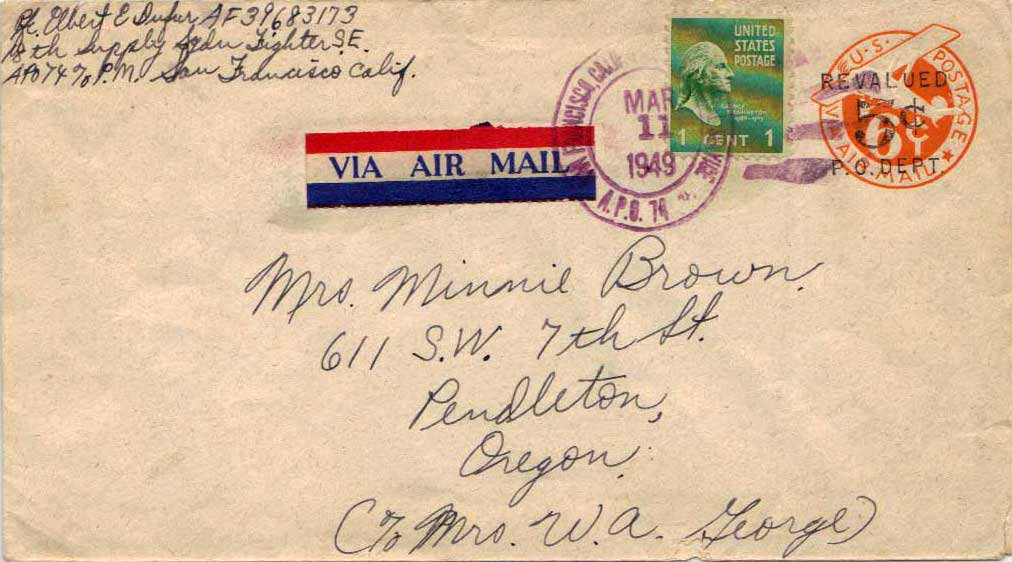 Pfc. Elbert E Dufur AF39683173
18th Supply Sqdn Fighter S.E.
APO 74 % P.M. San Francisco Calif.
UNITED
STATES
POSTAGE
GEORGE
WASHINGTON
1 CENT 1
U.S. POSTAGE
AIR MAIL
6¢
REVALUED
5¢
P.O. DEPT.
SAN FRANCISCO, CALIF.
MAR
11
1949
A.P.O. 74
VIA AIR MAIL
Mrs. Minnie Brown.
611 S.W. 7th St.
Pendleton,
Oregon.
(% Mrs. W.A. George)